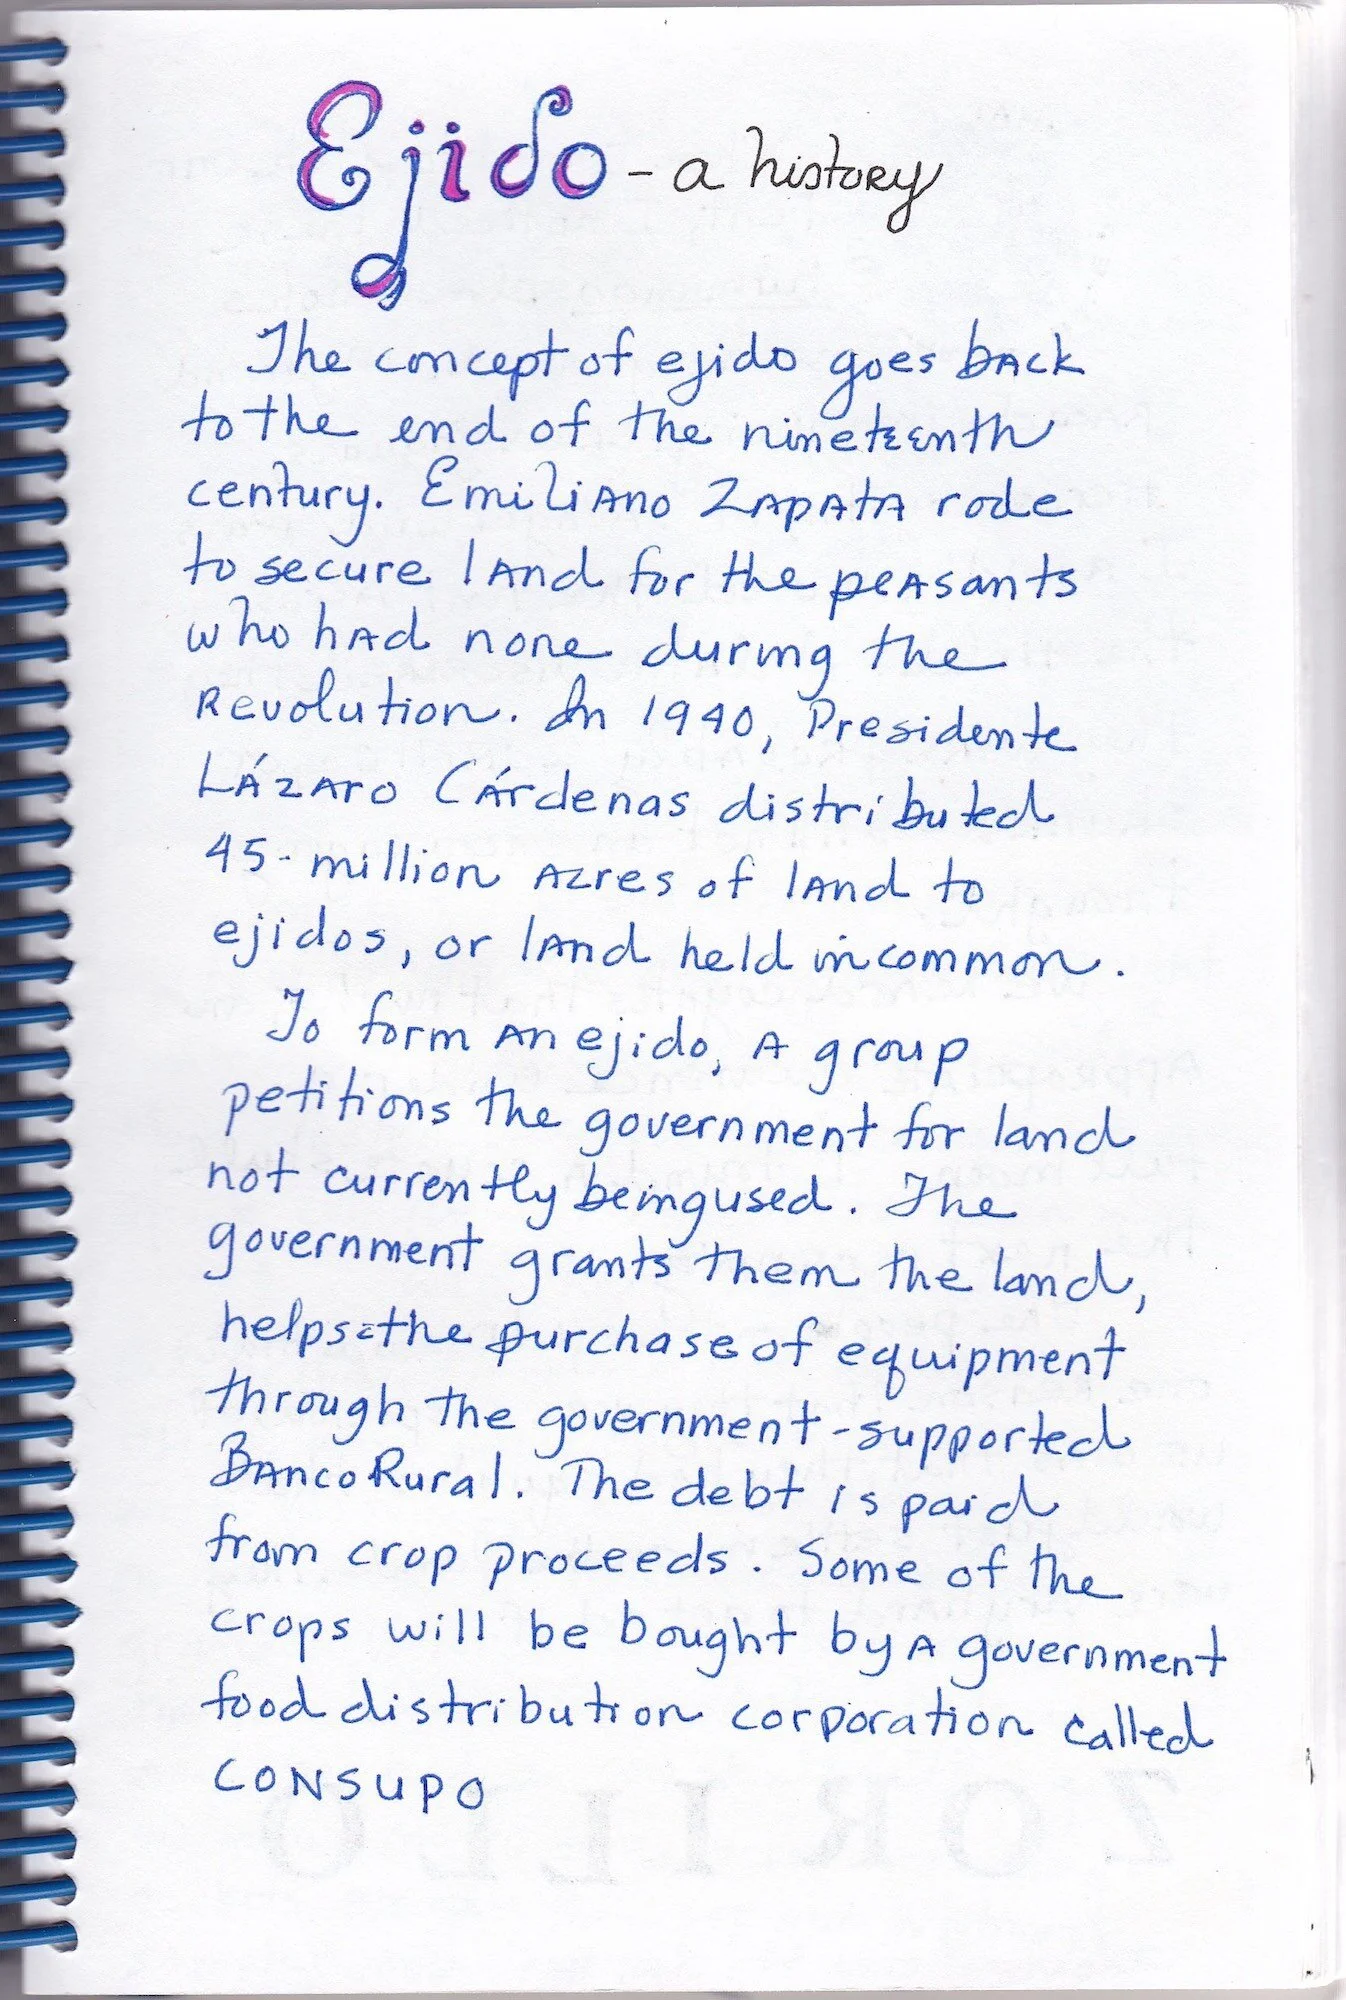 Ejido - a history
The concept of ejido goes back
to the end of the nineteenth
century. Emiliano Zapata rode
to secure land for the peasants
who had none during the
Revolution. In 1940, Presidente
Lázaro Cárdenas distributed
45-million azres of land to
ejidos, or land held in common.
To form an ejido, a group
petitions the government for land
not currently being used. The
government grants them the land,
helps the purchase of equipment
through the government-supported
Banco Rural. The debt is paid
from crop proceeds. Some of the
crops will be bought by a government
food distribution corporation called
CONSUPO
ZORILLO